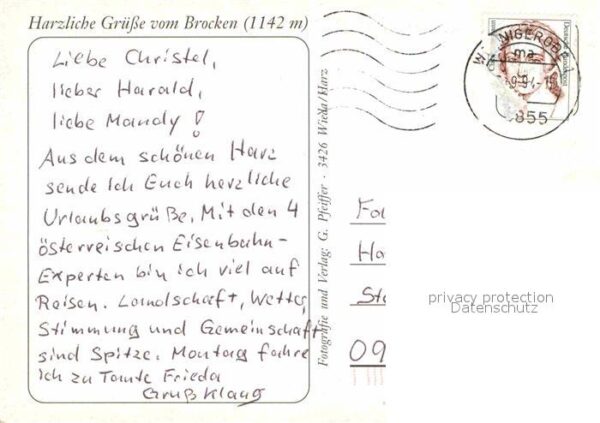 Harzliche Grüße vom Brocken (1142 m)
Liebe Christel,
lieber Harald,
liebe Mandy !
Aus dem schönen Harz
sende ich Euch herzliche
Urlaubsgrüße. Mit den 4
österreischen Eisenbahn-
Experten bin ich viel auf
Reisen. Landschaft, Wetter,
Stimmung und Gemeinschaft
sind Spitze. Montag fahre
ich zu Tante Frieda
Gruß Klaus
Fotografie und Verlag: G. Pfeiffer - 3426 Wieda/Harz
Deutsche Bundespost
WERNIGERODE
855
Fa
Ha
Sta
09
privacy protection
Datenschutz